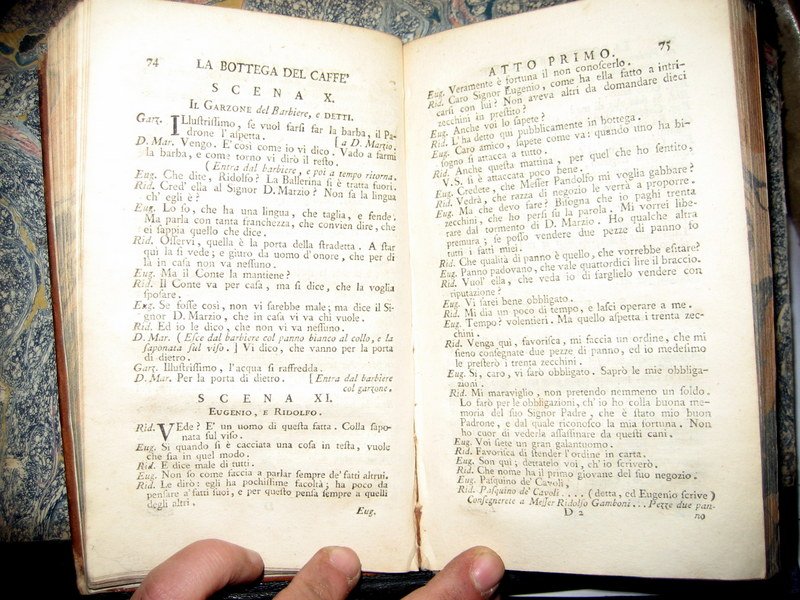 74 LA BOTTEGA DEL CAFFE'
SCENA X.
IL GARZONE del Barbiere, e DETTI.
Garz. Illustrissimo, se vuol farsi far la barba, il Pa-
drone l'aspetta. [a D. Marzio.
D. Mar. Vengo. E' così come io vi dico. Vado a farmi
la barba, e come torno vi dirò il resto.
(Entra dal barbiere, e poi a tempo ritorna.
Eug. Che dite, Ridolfo? La Ballerina si è tratta fuori.
Rid. Cred' ella al Signor D. Marzio? Non sa la lingua
ch' egli è?
Eug. Lo so, che ha una lingua, che taglia, e fende.
Ma parla con tanta franchezza, che convien dire, che
ei sappia quello che dice.
Rid. Osservi, quella è la porta della stradetta. A star
qui la si vede; e giuro da uomo d'onore, che per di
là in casa non va nessuno.
Eug. Ma il Conte la mantiene?
Rid. Il Conte va per casa, ma si dice, che la voglia
sposare.
Eug. Se fosse così, non vi sarebbe male; ma dice il Si-
gnor D. Marzio, che in casa vi va chi vuole.
Rid. Ed io le dico, che non vi va nessuno.
D. Mar. (Esce dal barbiere col panno bianco al collo, e la
saponata sul viso.] Vi dico, che vanno per la porta
di dietro.
Garz. Illustrissimo, l'acqua si raffredda.
D. Mar. Per la porta di dietro. [Entra dal barbiere
col garzone.
SCENA XI.
EUGENIO, E RIDOLFO.
Rid. VEde? E' un uomo di questa fatta. Colla sapo-
nata sul viso.
Eug. Sì quando si è cacciata una cosa in testa, vuole
che sia in quel modo.
Rid. E dice male di tutti.
Eug. Non so come faccia a parlar sempre de' fatti altrui.
Rid. Le dirò: egli ha pochissime facoltà; ha poco da
pensare a' fatti suoi, e per questo pensa sempre a quelli
degli altri.
Eug.
ATTO PRIMO. 75
Eug. Veramente è fortuna il non conoscerlo.
Rid. Caro Signor Eugenio, come ha ella fatto a intri-
carsi con lui? Non aveva altri da domandare dieci
zecchini in prestito?
Eug. Anche voi lo sapete?
Rid. L'ha detto qui pubblicamente in bottega.
Eug. Caro amico, sapete come va: quando uno ha bi-
sogno si attacca a tutto.
Rid. Anche questa mattina, per quel che ho sentito,
V. S. si è attaccata poco bene.
Eug. Credete, che Messer Pandolfo mi voglia gabbare?
Rid. Vedrà, che razza di negozio le verrà a proporre.
Eug. Ma che devo fare? Bisogna che io paghi trenta
zecchini, che ho persi su la parola. Mi vorrei libe-
rare dal tormento di D. Marzio. Ho qualche altra
premura; se posso vendere due pezze di panno fo
tutti i fatti miei.
Rid. Che qualità di panno è quello, che vorrebbe esitare?
Eug. Panno padovano, che vale quattordici lire il braccio.
Rid. Vuol' ella, che veda io di farglielo vendere con
riputazione?
Eug. Vi sarei bene obbligato.
Rid. Mi dia un poco di tempo, e lasci operare a me.
Eug. Tempo? volentieri. Ma quello aspetta i trenta zec-
chini.
Rid. Venga quì, favorisca, mi faccia un ordine, che mi
sieno consegnate due pezze di panno, ed io medesimo
le presterò i trenta zecchini.
Eug. Sì, caro, vi sarò obbligato. Saprò le mie obbliga-
zioni.
Rid. Mi maraviglio, non pretendo nemmeno un soldo.
Lo farò per le obbligazioni, ch' io ho colla buona me-
moria del suo Signor Padre, che è stato mio buon
Padrone, e dal quale riconosco la mia fortuna. Non
ho cuor di vederla assassinare da questi cani.
Eug. Voi siete un gran galantuomo.
Rid. Favorisca di stender l'ordine in carta.
Eug. Son quì; dettatelo voi, ch' io scriverò.
Rid. Che nome ha il primo giovane del suo negozio.
Eug. Pasquino de' Cavoli,
Rid. Pasquino de' Cavoli .... (detta, ed Eugenio scrive)
Consegnerete a Messer Ridolfo Gamboni ... Pezze due pan-
D 2 no